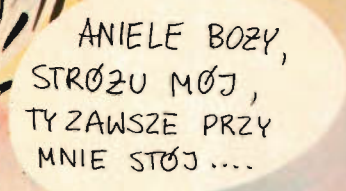 ANIELE BOŻY,
STRÓŻU MÓJ,
TY ZAWSZE PRZY
MNIE STÓJ....